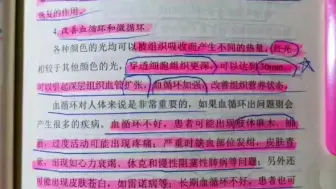 恢复的作用。
4.改善血循环和微循环
各种颜色的光均可以被组织吸收而产生不同的热量，红光
相较于其他颜色的光，穿透细胞组织更深，可以达到30mm，
可以引起深层组织血管扩张，血循环加强，改善组织营养状态。
血循环对人体来说是非常重要的，如果血循环出问题则会
产生很多的疾病，血循环不好，患者可能出现肢体麻木、
过度活动可能出现疼痛，严重时缺血部位发绀、皮肤
出现如心力衰竭、休克和慢性阻塞性肺病等问题；另外还
可能出现皮肤苍白，如雷诺病等；长期血循环不好，患者也